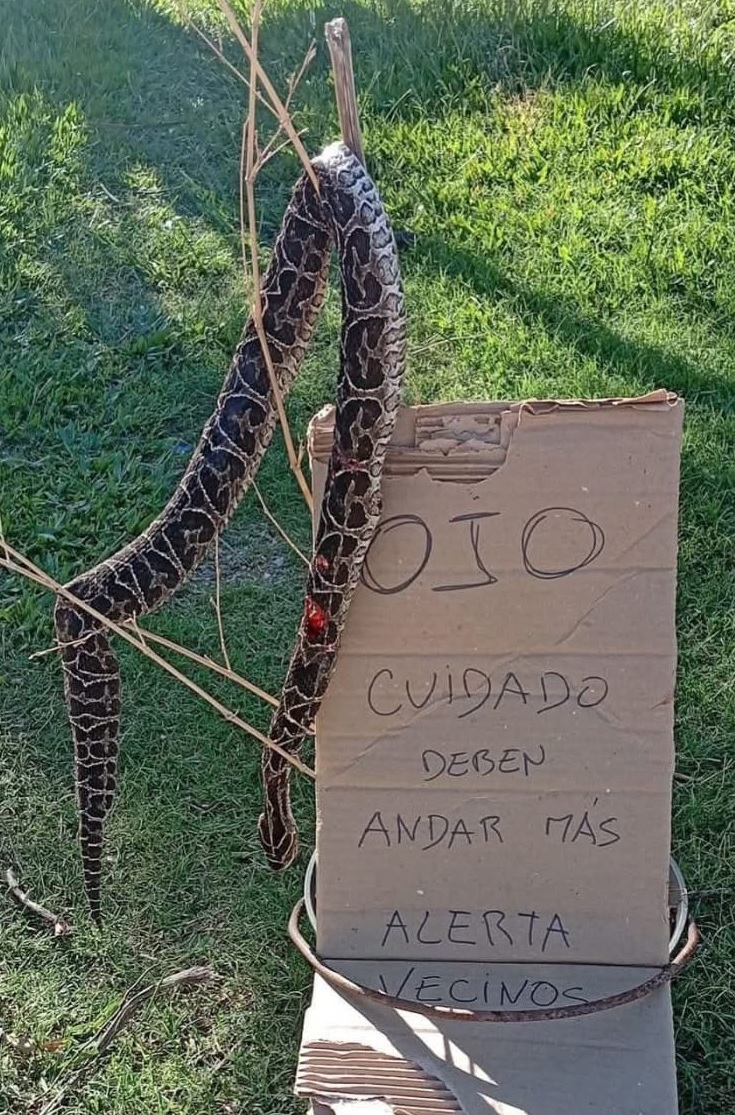 OJO
CUIDADO
DEBEN
ANDAR MÁS
ALERTA
VECINOS